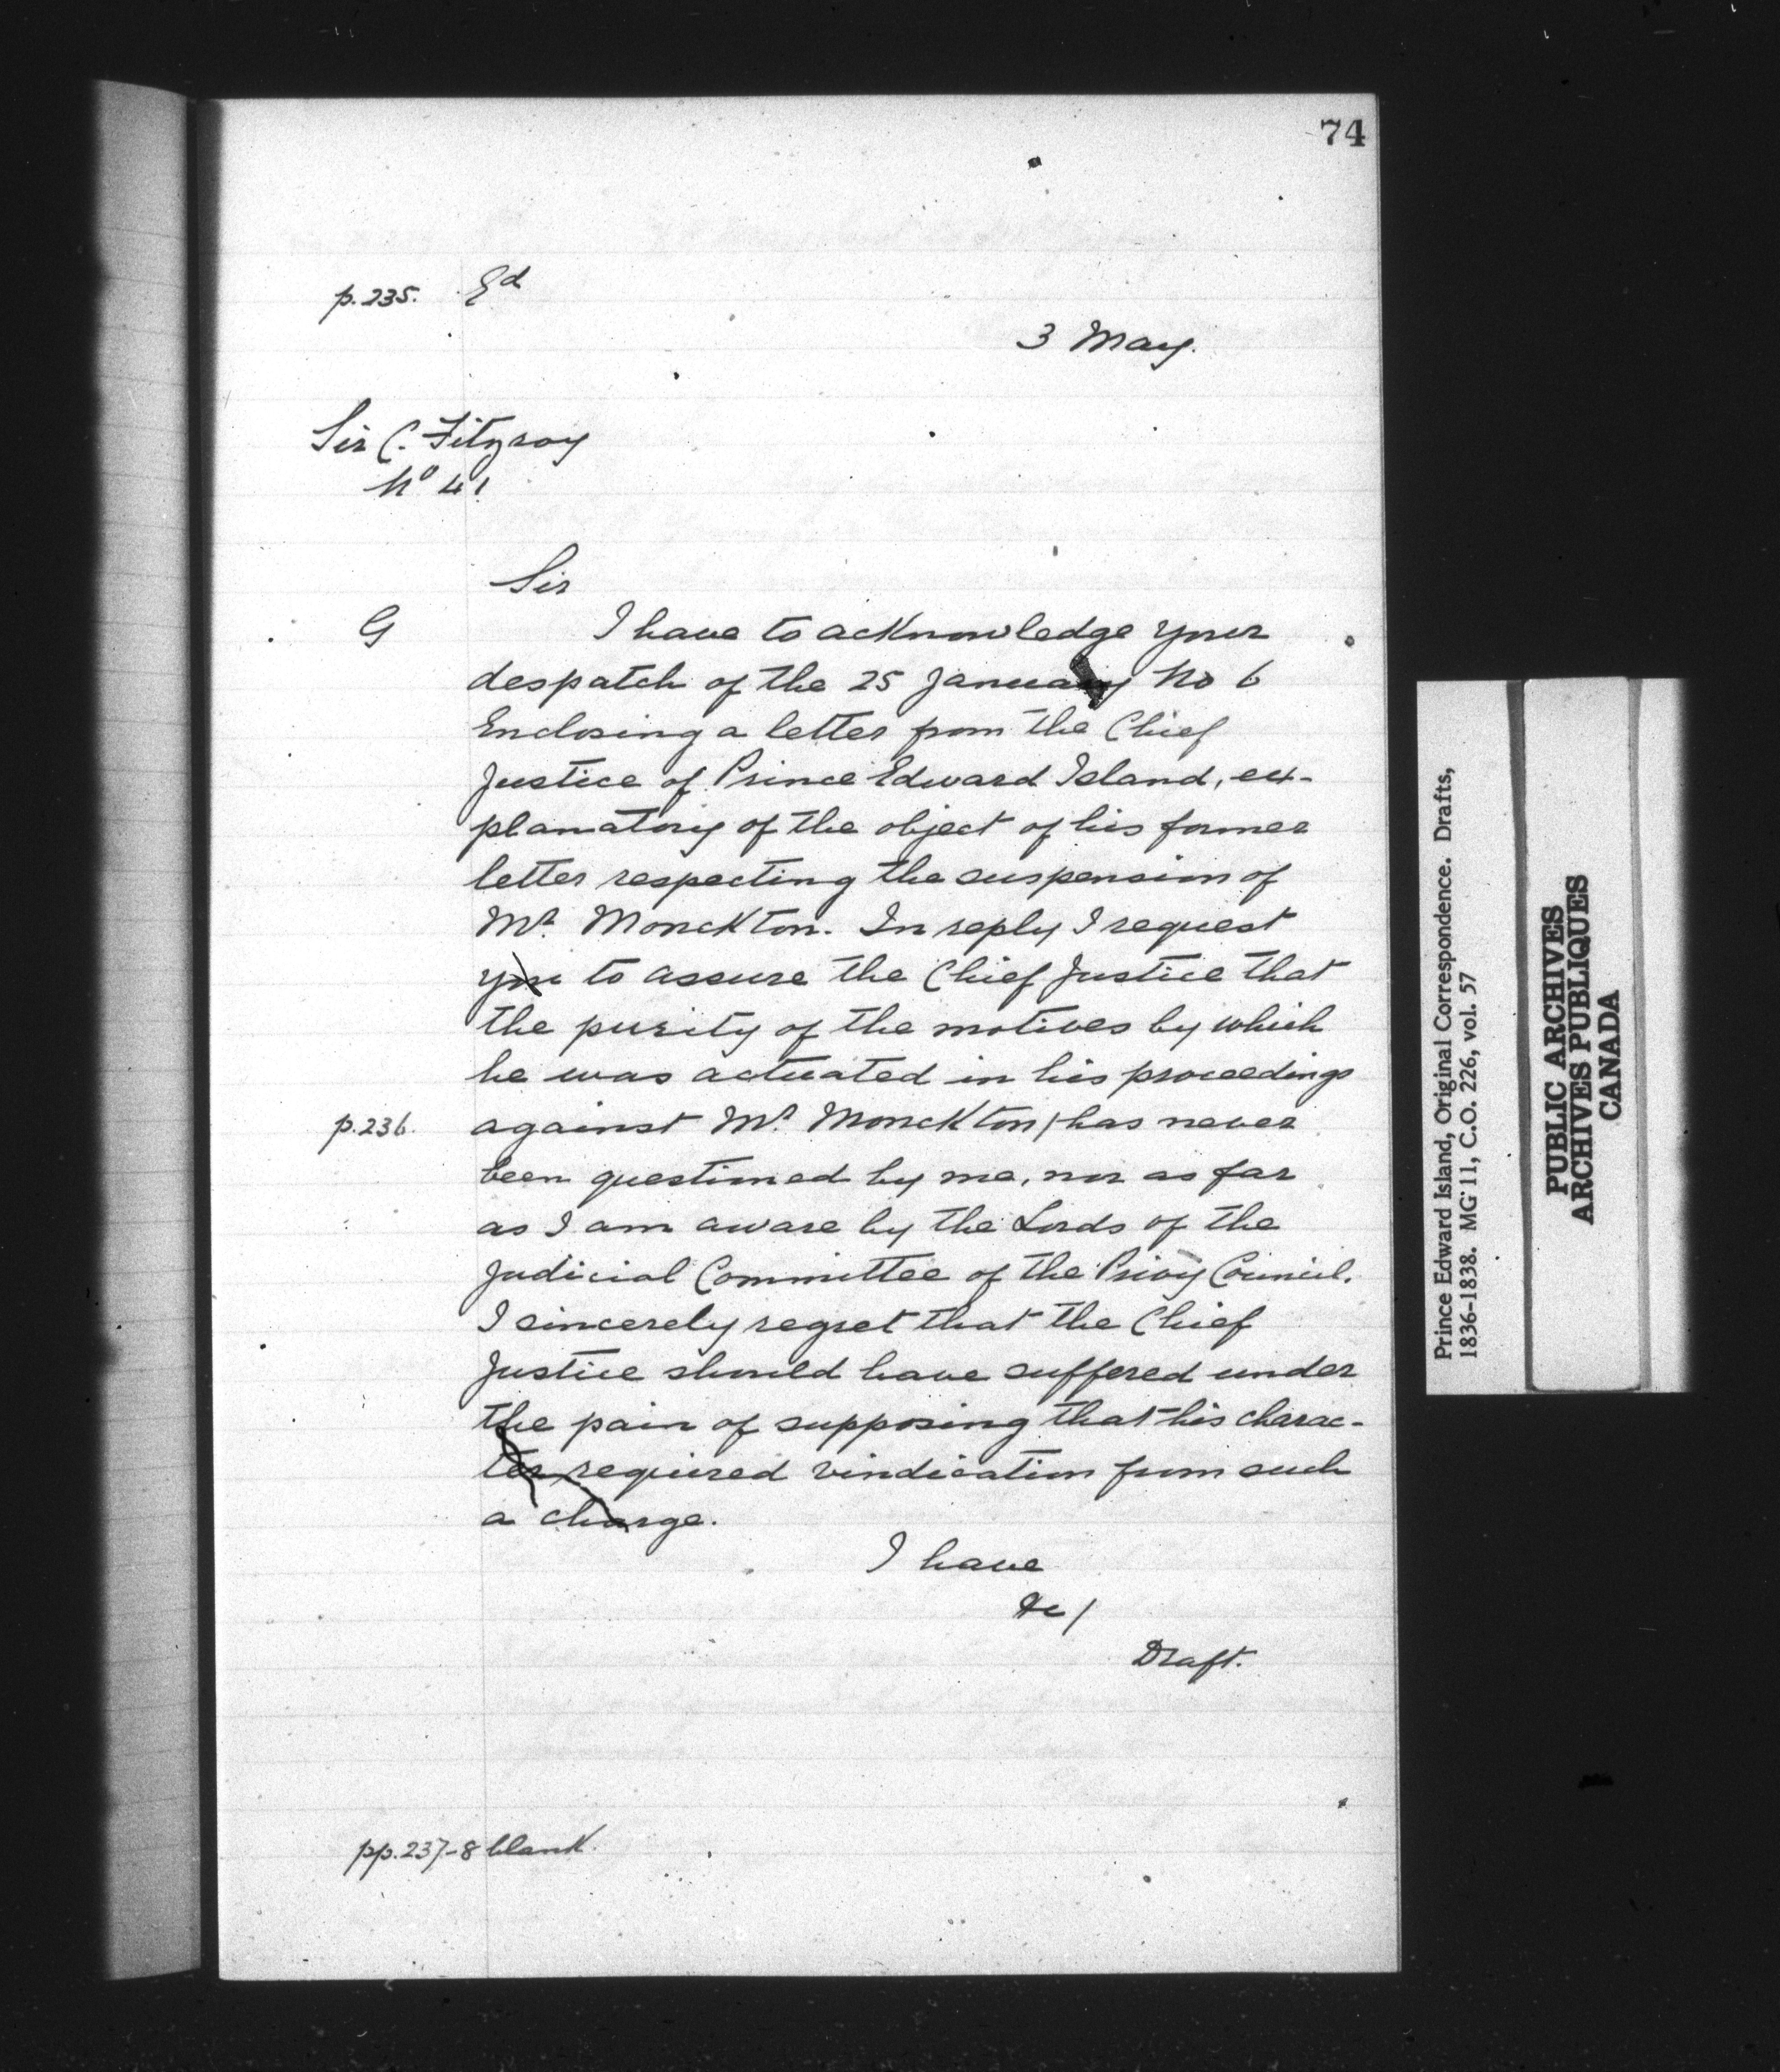 74
p.235. Ed
3 May.
Sir C. Fitzroy
No 41
Sir
G I have to acknowledge your
despatch of the 25 January No 6
Enclosing a letter from the Chief
Justice of Prince Edward Island, ex-
planatory of the object of his former
letter respecting the suspension of
Mr. Monckton. In reply I request
you to assure the Chief Justice that
the purity of the motives by which
he was actuated in his proceedings
p.236. against Mr. Monckton/has never
been questioned by me, nor as far
as I am aware by the Lords of the
Judicial Committee of the Privy Council.
I sincerely regret that the Chief
Justice should have suffered under
the pain of supposing that his charac-
ter required vindication from such
a charge.
I have
&c/
Draft.
pp.237-8 blank.
Prince Edward Island, Original Correspondence. Drafts,
1836-1838. MG 11, C.O. 226, vol. 57
PUBLIC ARCHIVES
ARCHIVES PUBLIQUES
CANADA